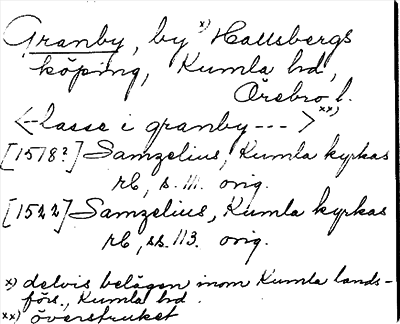 Granby, by x) Hallsbergs
köping, Kumla hd,
Örebro l.
<--lasse i granby---> xx)
[1518?] Samzelius, Kumla kyrkas
rb, s. 111. orig.
[1522] Samzelius, Kumla kyrkas
rb, ss. 113. orig.
x) delvis belägen inom Kumla lands-
förs., Kumla hd.
xx) överstruket